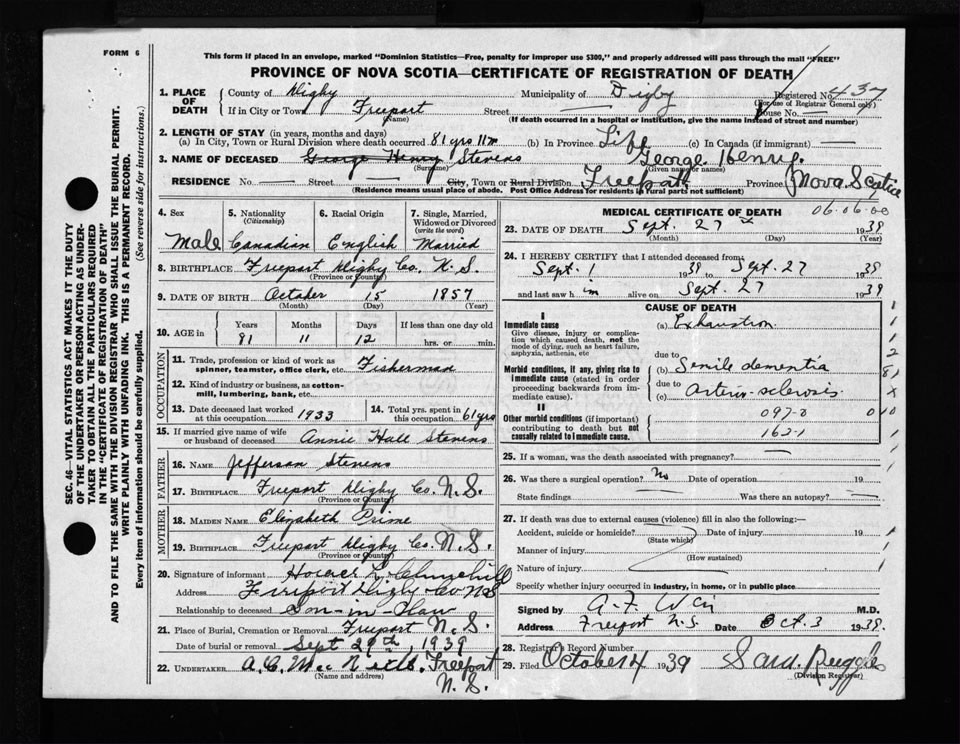 FORM 6
This form if placed in an envelope, marked "Dominion Statistics—Free, penalty for improper use $300," and properly addressed will pass through the mail "FREE"
PROVINCE OF NOVA SCOTIA—CERTIFICATE OF REGISTRATION OF DEATH
SEC. 46—VITAL STATISTICS ACT MAKES IT THE DUTY
OF THE UNDERTAKER OR PERSON ACTING AS UNDER-
TAKER TO OBTAIN ALL THE PARTICULARS REQUIRED
IN THE "CERTIFICATE OF REGISTRATION OF DEATH"
AND TO FILE THE SAME WITH THE DIVISION REGISTRAR WHO SHALL ISSUE THE BURIAL PERMIT.
WRITE PLAINLY WITH UNFADING INK. THIS IS A PERMANENT RECORD.
Every item of information should be carefully supplied. (See reverse side for instructions.)
1. PLACE OF DEATH County of Digby Municipality of Digby Registered No. 437
(For use of Registrar General only)
If in City or Town Freeport Street — House No. —
(Name) (If death occurred in a hospital or institution, give the name instead of street and number)
2. LENGTH OF STAY (in years, months and days)
(a) In City, Town or Rural Division where death occurred 81 yrs 11 m (b) In Province Life (c) In Canada (if immigrant) —
3. NAME OF DECEASED George Henry Stevens George Henry
(Surname) (Given name or names)
RESIDENCE No. — Street — City, Town or Rural Division Freeport Province Nova Scotia
(Residence means usual place of abode. Post Office Address for residents in rural parts not sufficient)
4. Sex 5. Nationality (Citizenship) 6. Racial Origin 7. Single, Married, Widowed or Divorced (write the word)
Male Canadian English Married
8. BIRTHPLACE Freeport Digby Co. N. S.
(Province or Country)
9. DATE OF BIRTH October 15 1857
(Month) (Day) (Year)
10. AGE in Years Months Days If less than one day old
81 11 12 hrs. or min.
OCCUPATION
11. Trade, profession or kind of work as spinner, teamster, office clerk, etc. Fisherman
12. Kind of industry or business, as cotton-mill, lumbering, bank, etc.
13. Date deceased last worked at this occupation 1933 14. Total yrs. spent in this occupation 61 yrs
15. If married give name of wife or husband of deceased Annie Hall Stevens
FATHER
16. NAME Jefferson Stevens
17. BIRTHPLACE Freeport Digby Co. N. S.
(Province or Country)
MOTHER
18. MAIDEN NAME Elizabeth Prime
19. BIRTHPLACE Freeport Digby Co. N. S.
(Province or Country)
20. Signature of informant Horace L. Churchill
Address Freeport Digby Co N S
Relationship to deceased Son-in-law
21. Place of Burial, Cremation or Removal Freeport N. S.
Date of burial or removal Sept 29th, 1939
22. UNDERTAKER Freeport N. S.
(Name and address)
MEDICAL CERTIFICATE OF DEATH 06.06.00
23. DATE OF DEATH Sept. 27 1939
(Month) (Day) (Year)
24. I HEREBY CERTIFY that I attended deceased from:
Sept. 1 1939 to Sept. 27 1939
and last saw him alive on Sept. 27 1939
CAUSE OF DEATH
I
Immediate cause (a) Exhaustion
Give disease, injury or complication which caused death, not the mode of dying, such as heart failure, asphyxia, asthenia, etc
due to
Morbid conditions, if any, giving rise to immediate cause (stated in order proceeding backwards from immediate cause). (b) Senile dementia
due to
(c) Arterio-sclerosis
II
Other morbid conditions (if important) contributing to death but not causally related to immediate cause.
097-8
162-1
25. If a woman, was the death associated with pregnancy? —
26. Was there a surgical operation? No Date of operation 19
State findings — Was there an autopsy? —
27. If death was due to external causes (violence) fill in also the following:—
Accident, suicide or homicide? Date of injury 19
(State which)
Manner of injury
(How sustained)
Nature of injury
Specify whether injury occurred in industry, in home, or in public place
Signed by M.D.
Address Freeport N.S. Date Oct. 3 1939.
28. Registrar's Record No.
29. Filed October 4 1939 Ruggles
(Division Registrar)